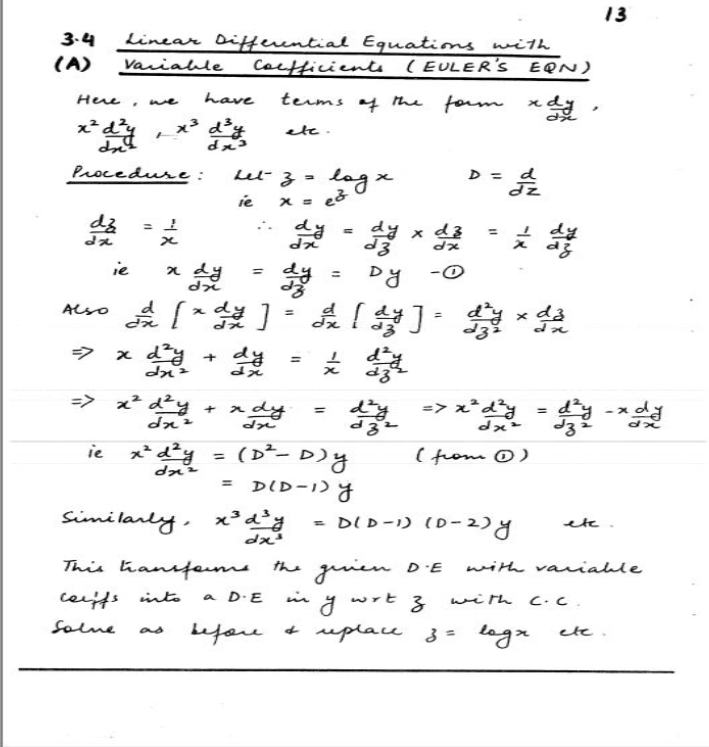 13
3.4 Linear Differential Equations with
(A) Variable Coefficients (EULER'S EQN)
Here, we have terms of the form x dy/dx,
x² d²y/dx², x³ d³y/dx³ etc.
Procedure: Let z = log x D = d/dz
ie x = e^z
dz/dx = 1/x ∴ dy/dx = dy/dz × dz/dx = 1/x dy/dz
ie x dy/dx = dy/dz = Dy -①
Also d/dx [x dy/dx] = d/dx [dy/dz] = d²y/dz² × dz/dx
=> x d²y/dx² + dy/dx = 1/x d²y/dz²
=> x² d²y/dx² + x dy/dx = d²y/dz² => x² d²y/dx² = d²y/dz² - x dy/dx
ie x² d²y/dx² = (D² - D)y (from ①)
= D(D-1)y
Similarly, x³ d³y/dx³ = D(D-1)(D-2)y etc.
This transforms the given D.E with variable
coeffs into a D.E in y wrt z with C.C.
Solve as before & replace z = log x etc.